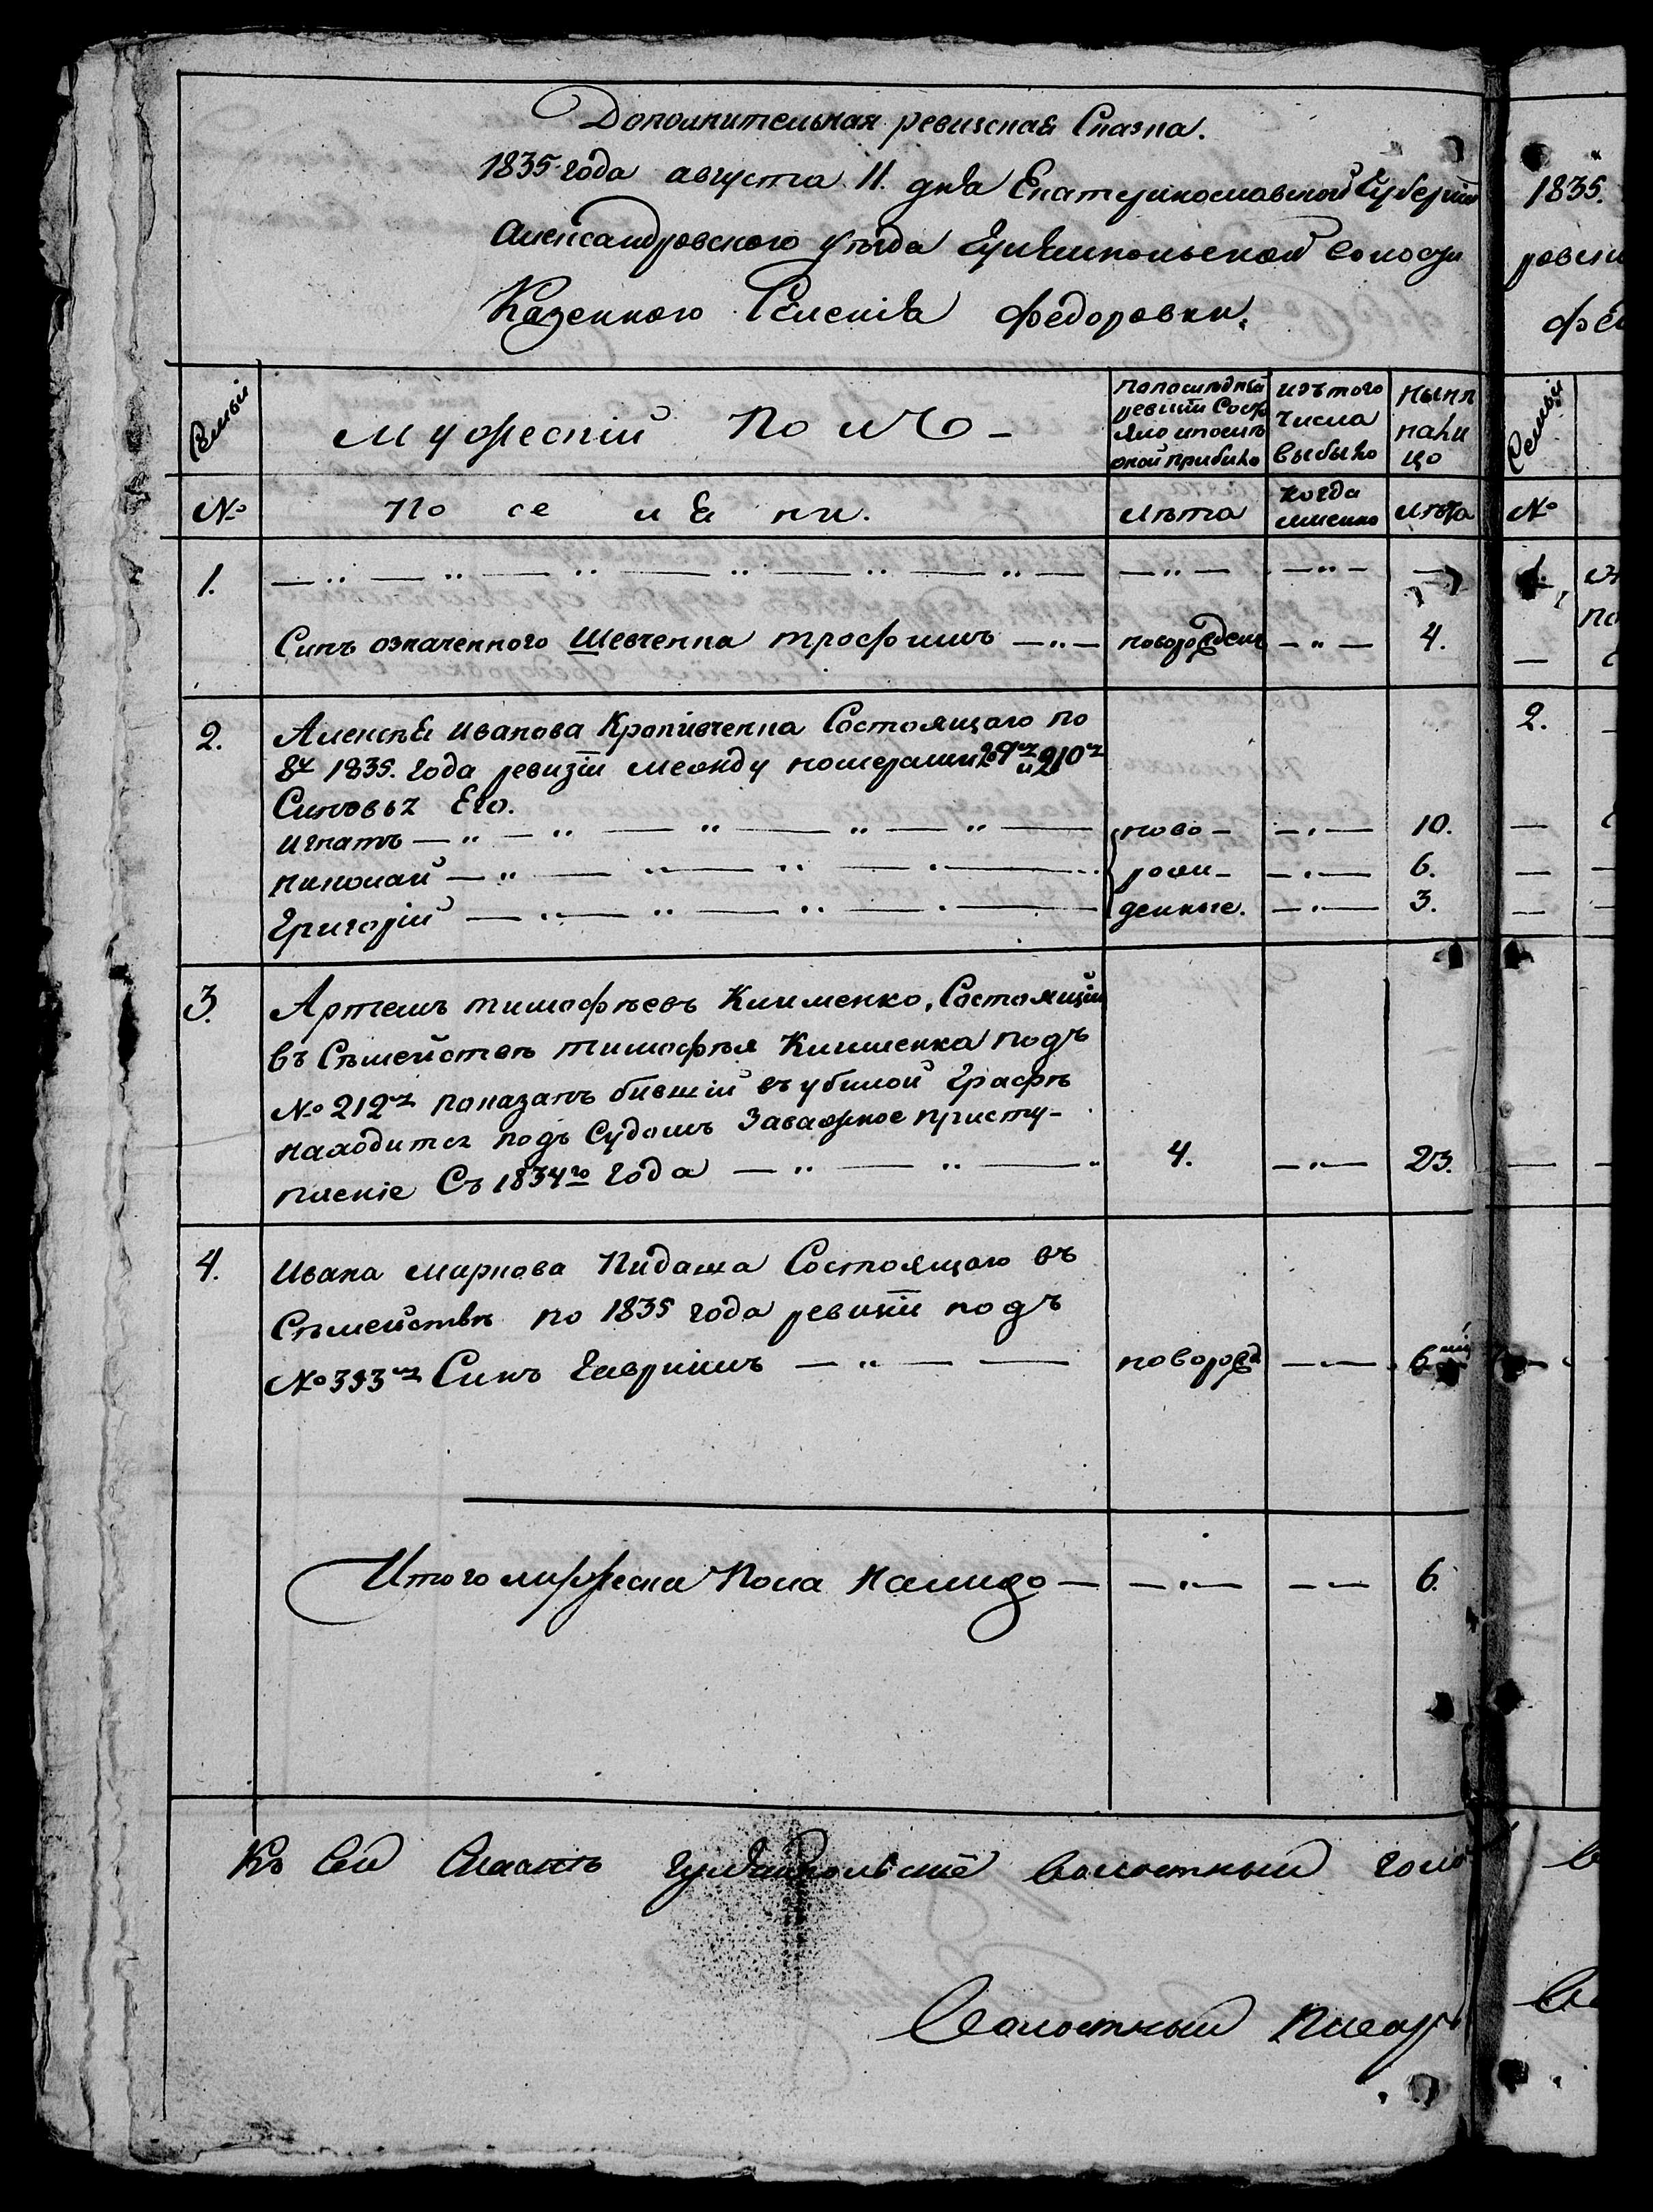 Дополнительная ревизская Сказка.
1835 года августа 11. дня Екатеринославской Губерніи
Александровского уѣзда Гуляйпольской волости
Казенного Селенія Федоровки.
Семьи
Мужескій полъ
По последней ревизіи Состояло и после оной прибыло
изъ того числа выбыло
нынѣ налицо
№
Поселяки.
лѣта
когда именно
лѣта
1.
Синъ означенного Шевченка трофимъ
новорожден
4.
2.
Алексѣя иванова Кропивченка Состоящаго по
8й 1835. года ревизіи между номерами 209мъ и 210мъ
Сыновья Его.
игнатъ
ново-
10.
николай
рож-
6.
Григорій
денные.
3.
3.
Артемъ тимофѣевъ Клименко, Состоящій
въ Сѣмействѣ тимофѣя Клименка подъ
№ 212мъ показанъ бившій въ убилой Графѣ
находится подъ Судомъ Заважное присту-
4.
23.
пленіе Съ 1834го года
4.
Ивана маркова Кидаша Состоящаго въ
Сѣмействѣ по 1835 года ревизіи подъ
№ 393мъ Синъ Гавріилъ
новорожд
6
Итого мужеска Пола налицо
6.
Къ Сей Сказкѣ Гуляйпольскій волостный голо
Волостный писарь
1835.
ревизі
Фед
Семьи
№
2.